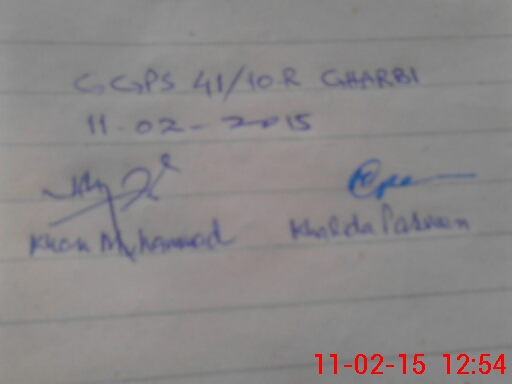 GGPS 41/10R GHARBI
11-02-2015
Khan Muhammad Khalda Parveen
11-02-15 12:54